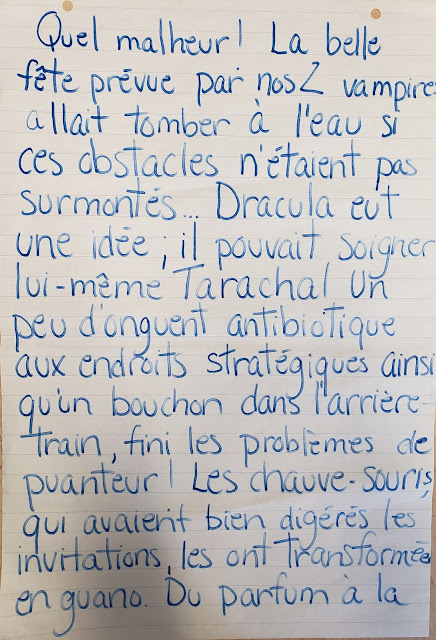 Quel malheur! La belle
fête prévue par nos 2 vampires
allait tomber à l'eau si
ces obstacles n'étaient pas
surmontés... Dracula eut
une idée ; il pouvait soigner
lui-même Taracha! Un
peu d'onguent antibiotique
aux endroits stratégiques ainsi
qu'un bouchon dans l'arrière-
train, fini les problèmes de
puanteur! Les chauve-souris,
qui avaient bien digérés les
invitations, les ont transformées
en guano. Du parfum à la